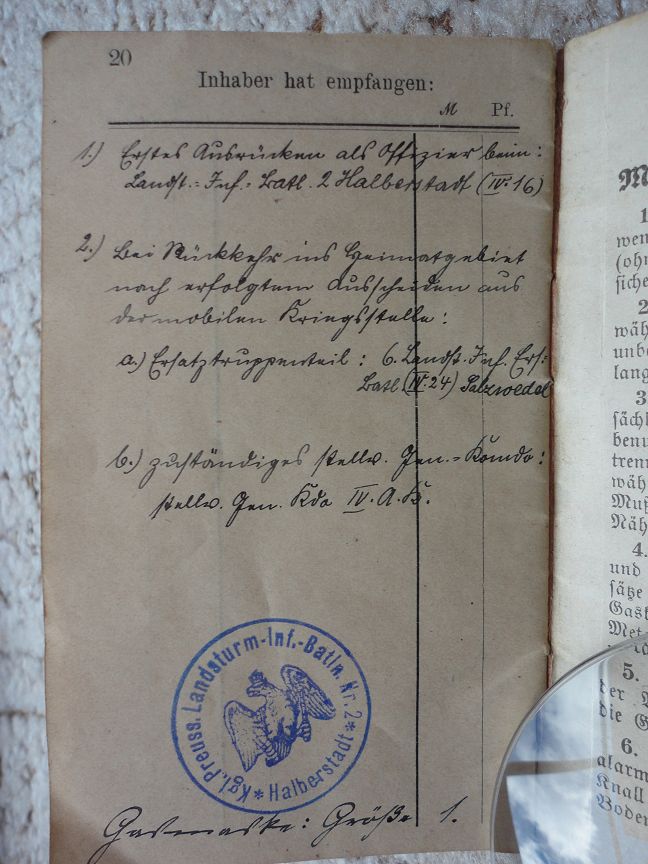 20
Inhaber hat empfangen:
M Pf.
1.) Erstes Ausrücken als Offizier beim:
Landst.-Inf.-Batl. 2 Halberstadt (IV.16)
2.) Bei Rückkehr ins Heimatgebiet
nach erfolgtem Ausscheiden aus
der mobilen Kriegsstelle:
a.) Ersatztruppenteil: 6. Landst. Inf. Ers.
Batl. (IV.24) Salzwedel
b.) zuständiges stellv. Gen.-Komdo:
stellv. Gen. Kdo IV. A.K.
Kgl. Preuss. Landsturm-Inf.-Batln. Nr. 2
* Halberstadt *
Gasmaske: Größe 1.
M
1
wen
(ohn
siche
2
wäh
unbe
lang
3
sächl
benu
tren
wäh
Muß
Näh
4.
und
sätze
Gas
Met
5.
der
die G
6.
alarm
Knall
Boden